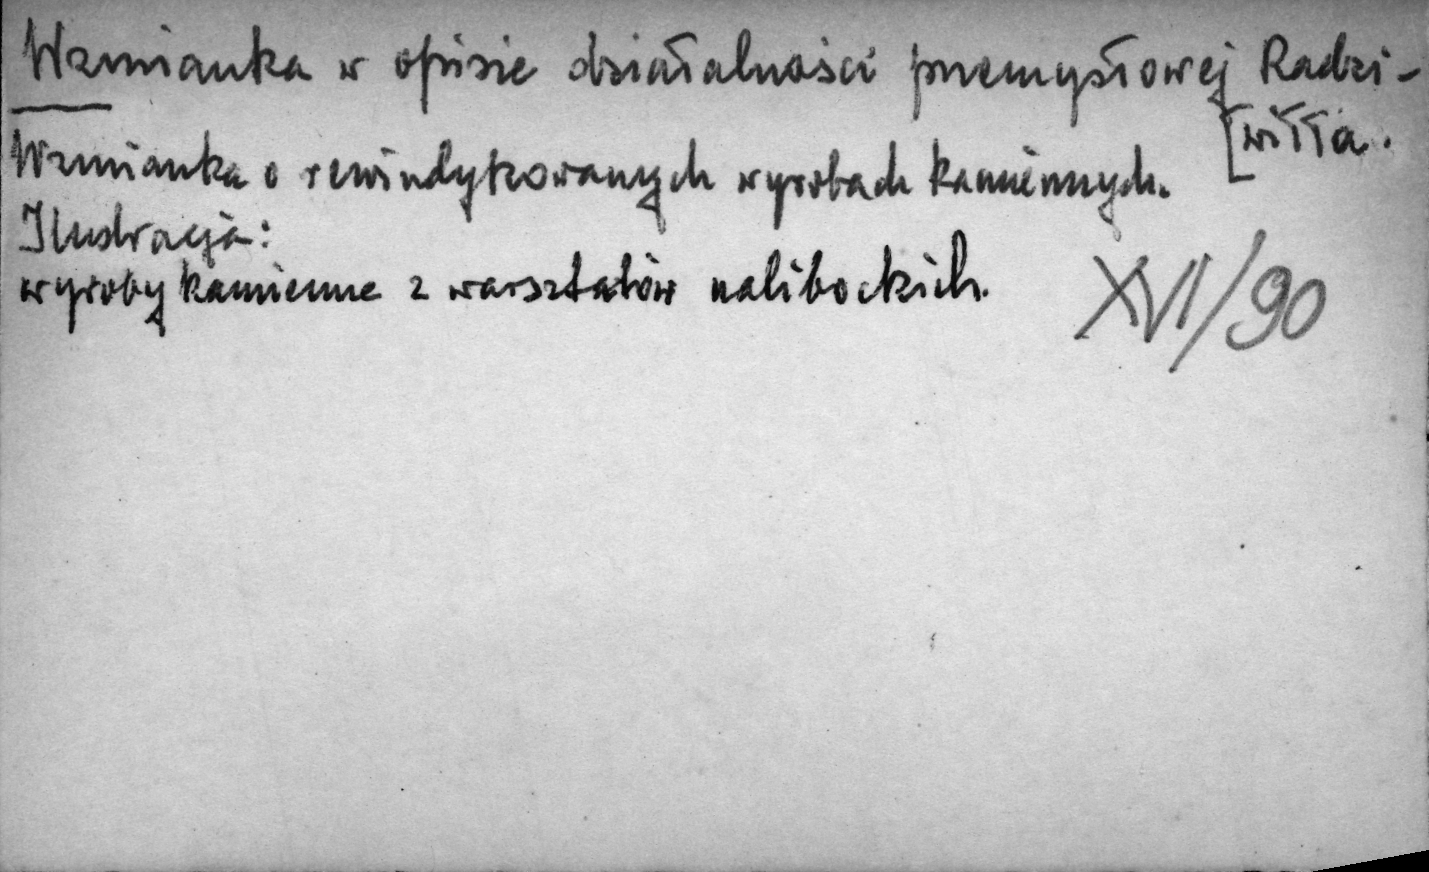 Wzmianka w opisie działalności przemysłowej Radzi-
[wiłła.
Wzmianka o rewindykowanych wyrobach kamiennych.
Ilustracja:
wyroby kamienne z warsztatów nalibockich.
XVI/90